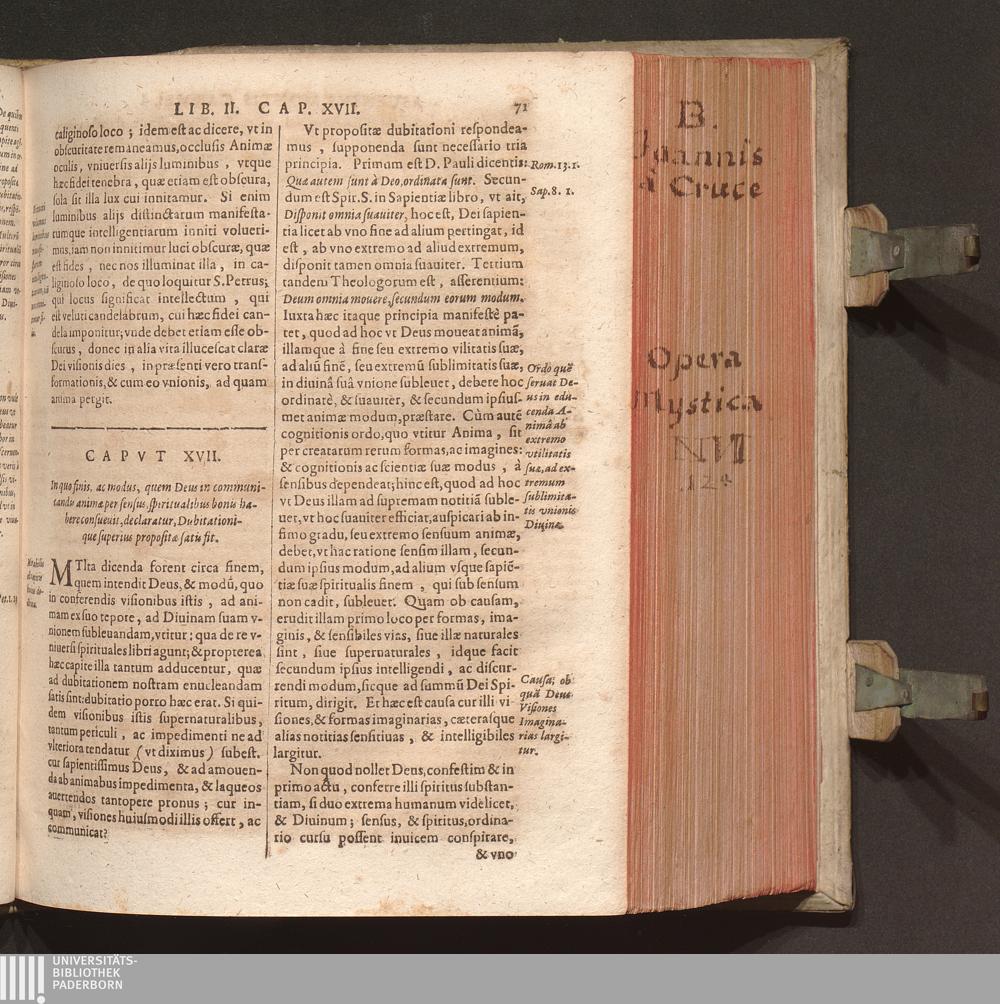 LIB. II. CAP. XVII. 71
caliginoso loco ; idem est ac dicere, vt in
obscuritate remaneamus, occlusis Animæ
oculis, vniuersis alijs luminibus , vtque
hæc fidei tenebra , quæ etiam est obscura,
sola sit illa lux cui innitamur. Si enim
luminibus alijs distinctarum manifesta-
rumque intelligentiarum inniti volueri-
mus, iam non innitimur luci obscuræ, quæ
est fides , nec nos illuminat illa , in ca-
liginoso loco, de quo loquitur S. Petrus;
qui locus significat intellectum , qui
est veluti candelabrum, cui hæc fidei can-
dela imponitur; vnde debet etiam esse ob-
scurus , donec in alia vita illucescat claræ
Dei visionis dies , in præsenti vero trans-
formationis, & cum eo vnionis, ad quam
anima pergit.
CAPVT XVII.
In quo finis, ac modus, quem Deus in communi-
candis animæ per sensus, spiritualibus bonis ha-
bere consueuit, declaratur, Dubitationi-
que superius propositæ satis fit.
MVlta dicenda forent circa finem,
quem intendit Deus, & modũ, quo
in conferendis visionibus istis , ad ani-
mam ex suo tepore , ad Diuinam suam v-
nionem subleuandam, vtitur : qua de re v-
niuersi spirituales libri agunt; & propterea
hæc capite illa tantum adducentur, quæ
ad dubitationem nostram enucleandam
satis sint: dubitatio porro hæc erat. Si qui-
dem visionibus istis supernaturalibus,
tantum periculi , ac impedimenti ne ad
vlteriora tendatur (vt diximus) subest.
cur sapientissimus Deus, & ad amouen-
da ab animabus impedimenta, & laqueos
auertendos tantopere pronus ; cur in-
quam, visiones huiusmodi illis offert , ac
communicat?
Vt propositæ dubitationi respondea-
mus , supponenda sunt necessario tria
principia. Primum est D. Pauli dicentis:
Quæ autem sunt à Deo, ordinata sunt. Secun-
dum est Spir. S. in Sapientiæ libro, vt ait,
Disponit omnia suauiter, hoc est, Dei sapien-
tia licet ab vno fine ad alium pertingat, id
est , ab vno extremo ad aliud extremum,
disponit tamen omnia suauiter. Tertium
tandem Theologorum est , asserentium:
Deum omnia mouere, secundum eorum modum.
Iuxta hæc itaque principia manifestè pa-
tet, quod ad hoc vt Deus moueat animã,
illamque à fine seu extremo vilitatis suæ,
ad aliũ finẽ, seu extremũ sublimitatis suæ,
in diuinâ suâ vnione subleuet, debere hoc
ordinatè, & suauiter, & secundum ipsius-
met animæ modum, præstare. Cùm autẽ
cognitionis ordo, quo vtitur Anima, sit
per creatarum rerum formas, ac imagines:
& cognitionis ac scientiæ suæ modus , à
sensibus dependeat; hinc est, quod ad hoc
vt Deus illam ad supremam notitiã suble-
uet, vt hoc suauiter efficiat, auspicari ab in-
fimo gradu, seu extremo sensuum animæ,
debet, vt hac ratione sensim illam, secun-
dum ipsius modum, ad alium vsque sapiẽ-
tiæ suæ spiritualis finem , qui sub sensum
non cadit, subleuet. Quam ob causam,
erudit illam primo loco per formas, ima-
ginis, & sensibiles vias, siue illæ naturales
sint , siue supernaturales , idque facit
secundum ipsius intelligendi , ac discur-
rendi modum, sicque ad summũ Dei Spi-
ritum, dirigit. Et hæc est causa cur illi vi-
siones, & formas imaginarias, cæterasque
alias notitias sensitiuas , & intelligibiles
largitur.
Non quod nollet Deus, confestim & in
primo actu , conferre illi spiritus substan-
tiam, si duo extrema humanum videlicet,
& Diuinum ; sensus, & spiritus, ordina-
rio cursu possent inuicem conspirare,
& vno
Rom. 13. 1.
Sap. 8. 1.
Ordo quẽ
seruat De-
us in edu-
cenda A-
nimâ ab
extremo
vtilitatis
suæ, ad ex-
tremum
sublimita-
tis vnionis
Diuinæ
Causa; ob
quã Deus
Visiones
Imagina-
rias largi-
tur.
B.
Joannis
à Cruce
Opera
Mystica
UNIVERSITÄTS-
BIBLIOTHEK
PADERBORN